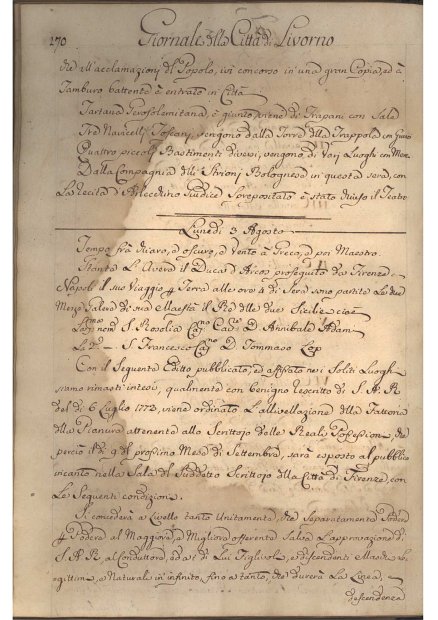 270 Giornale della Città di Livorno
che all'acclamazioni del Popolo, ivi concorso in una gran Copia, ed à
Tamburo battente è entrato in Città
Tartana Gerosolemitana, è giunta, viene di Trapani con Sale
Tre Navicelli Toscani, vengono dalla Torre della Trappola con
Quattro piccoli Bastimenti diversi, vengono di Varj Luoghi con Merci
Dalla Compagnia delli Strioni Bolognese in questa sera, con
La Recita d'Arlecchino Giudice Sprepositato è stato chiuso il Teatro
Lunedi 3 Agosto
Tempo frà chiaro, e oscuro, e vento à Greco, e poi Maestro
Stante L'avere il Duca d'Arcos proseguito da Firenze
Napoli il suo Viaggio p Terra alle ore 4 di Sera sono partite Le due
Mezze Galere di sua Maestà il Rè delle due Sicilie cioè
S Rosolia Cap.no Cav.e D Annibale Adam
S Francesco Cap.no D Tommaso
Con il Seguente Editto pubblicato, ed affisso nei Soliti Luoghi
siamo rimasti intesi, qualmente con benigno rescritto di S. A. R.
del dì 6 Luglio 1772, viene ordinato L'allivellazione della Fattoria
della Pianura attenente allo Scrittojo delle Reali Possessioni, che
perciò il dì 9 del prossimo Mese di Settembre, sarà esposto al pubblico
incanto nella Sala del Suddetto Scrittojo della Città di Firenze, con
Le Seguenti condizioni.
Si concederà à Livello tanto Unitamente, che Separatamente Podere
p Podere al Maggiore, e Migliore offerente Salva L'approvazione di
S. A. R. al Conduttore, ed a' di Lui Figlivoli, e descendenti Maschi
legittimi, e Naturali in infinito, fino a tanto, che durerà La Linea,
descendenza